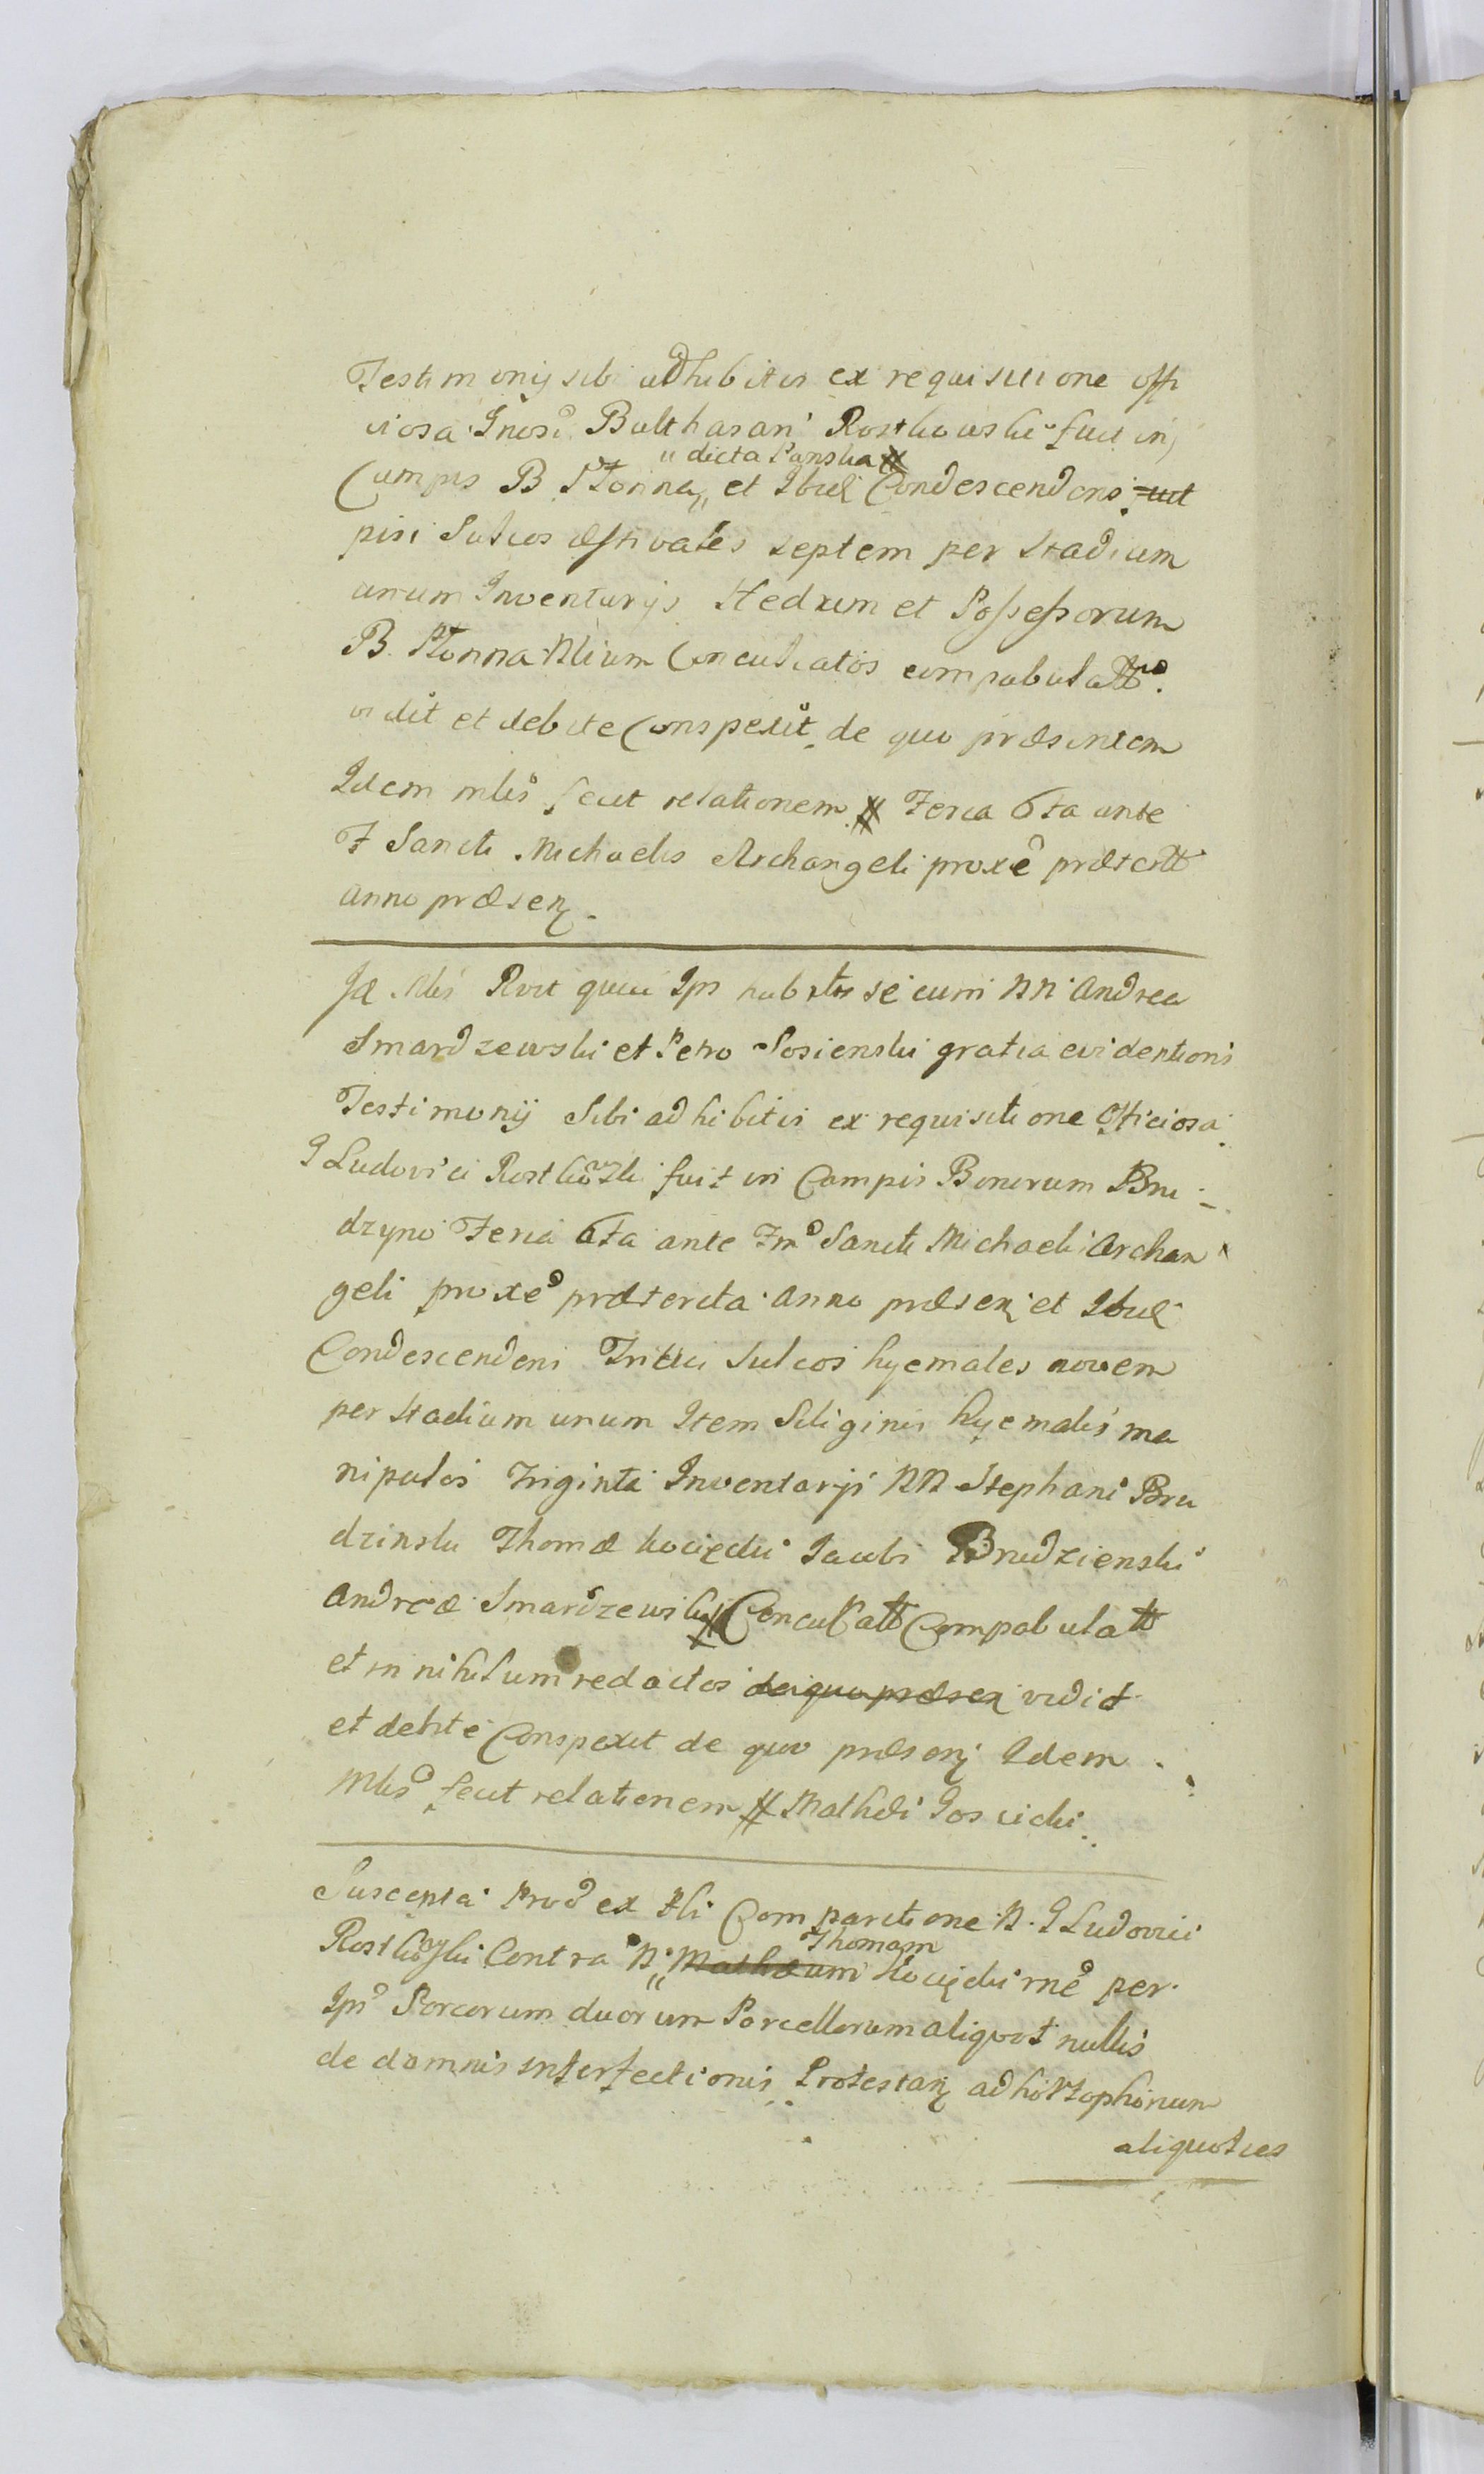 Testimonij sibi adhibitis ex requisitione offi
ciosa Gnosi Balthasari Rostkowski fuit in
" dicta Panska
Campis B Słonna " et Ibid Condescendens
pisi Sulcos æstivales septem per Stadium
unum Inventarijs Hedum et Possessorum
B. Słonna alium Conculcatos compabulatt
vidit et debite Conspexit de quo præsentem
Idem mlis fecit relationem Feria 6ta ante
F Sancti Michaelis Archangeli proxe præterit
anno præsen
Id. Mlis Rvit quia Ips habitis secum NN Andrea
Smardzewski et Petro Sosienski gratia evidentioris
Testimonij Sibi adhibitis ex requisitione Officiosa
G Ludovici Rostkowski fuit in Campis Bonorum Bru-
dzyno Feria 6ta ante Fm Sancti Michaelis Archan
geli proxe præterita anno præsen et Ibid
Condescendens Tritici Sulcos hyemales novem
per Stadium unum Item Siliginis hyemalis ma
nipulos Triginta Inventarijs NN Stephani Bru
dzinski Thomæ Kocięcki Jacobi Brudzienski
Andreæ Smardzewski Conculcatt Compabulatt
et in nihilum redactos de quo præsen vidit
et debite Conspexit de quo præsen Idem
Mlis fecit relationem Mathæi Gosicki
Suscepta Prod ex Comparitione N. G Ludovici
Thomam
Rostkowski Contra N " Mathæum Kocięcki rne per
Ips Porcorum duorum Porcellorum aliquot nullis
de damnis interfectionis Protestan
aliquoties